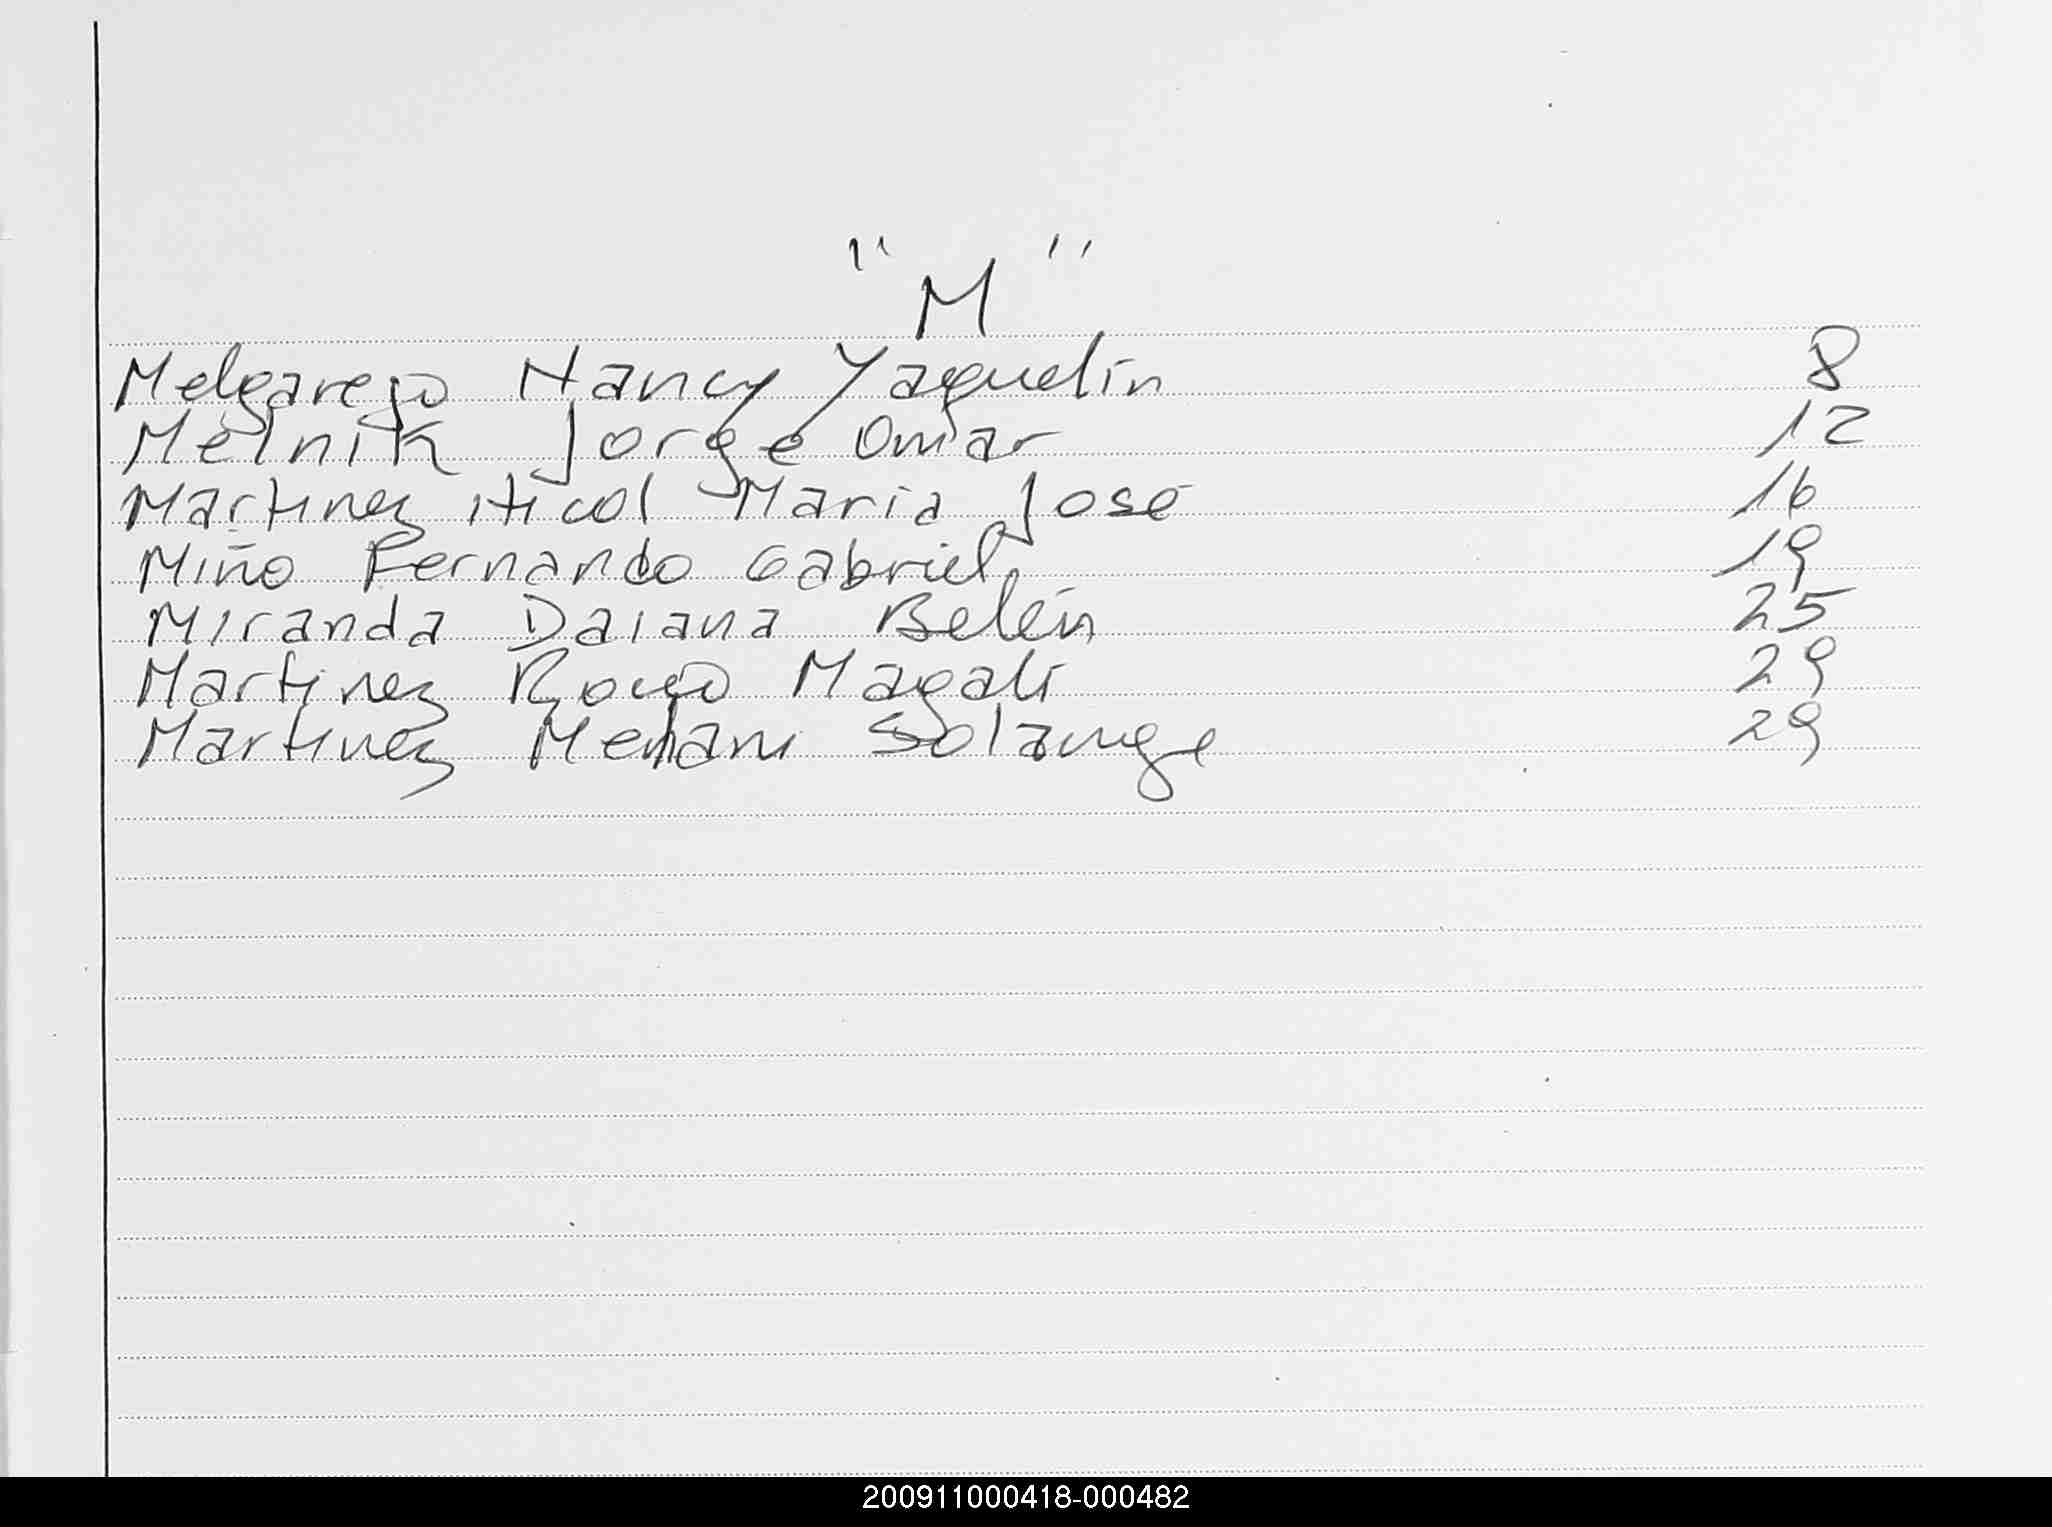 "M"
Melgarejo Nancy Yaquelin 8
Melnik Jorge Omar 12
Martinez Nicol Maria José 16
Miño Fernando Gabriel 19
Miranda Daiana Belén 25
Martinez Rocio Magali 29
Martinez Melani Solange 29
200911000418-000482